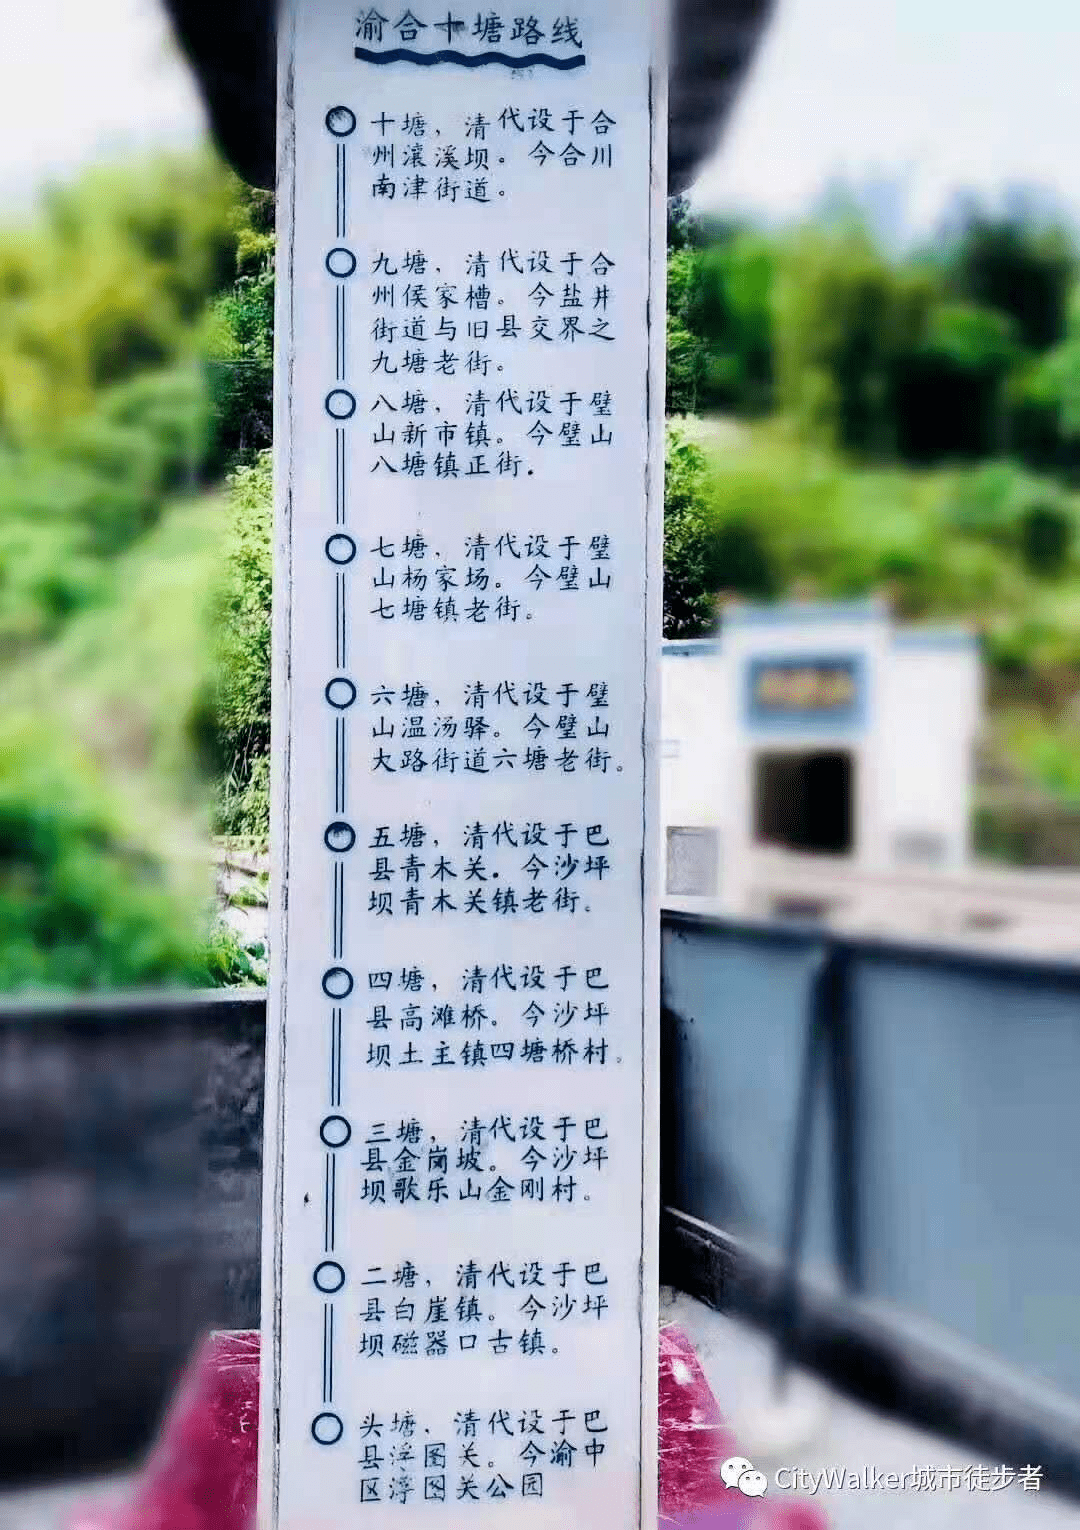 渝合十塘路线
十塘，清代设于合
州瀼溪坝。今合川
南津街道。
九塘，清代设于合
州侯家槽。今盐井
街道与旧县交界之
九塘老街。
八塘，清代设于璧
山新市镇。今璧山
八塘镇正街.
七塘，清代设于璧
山杨家场。今璧山
七塘镇老街。
六塘，清代设于璧
山温汤驿。今璧山
大路街道六塘老街。
五塘，清代设于巴
县青木关.今沙坪
坝青木关镇老街。
四塘，清代设于巴
县高滩桥。今沙坪
坝土主镇四塘桥村。
三塘，清代设于巴
县金岗坡。今沙坪
坝歌乐山金刚村。
二塘，清代设于巴
县白崖镇。今沙坪
坝磁器口古镇。
头塘，清代设于巴
县浮图关。今渝中
区浮图关公园
CityWalker城市徒步者